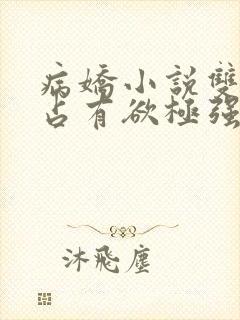 病嬌小説雙
占有欲極强
沐飛塵